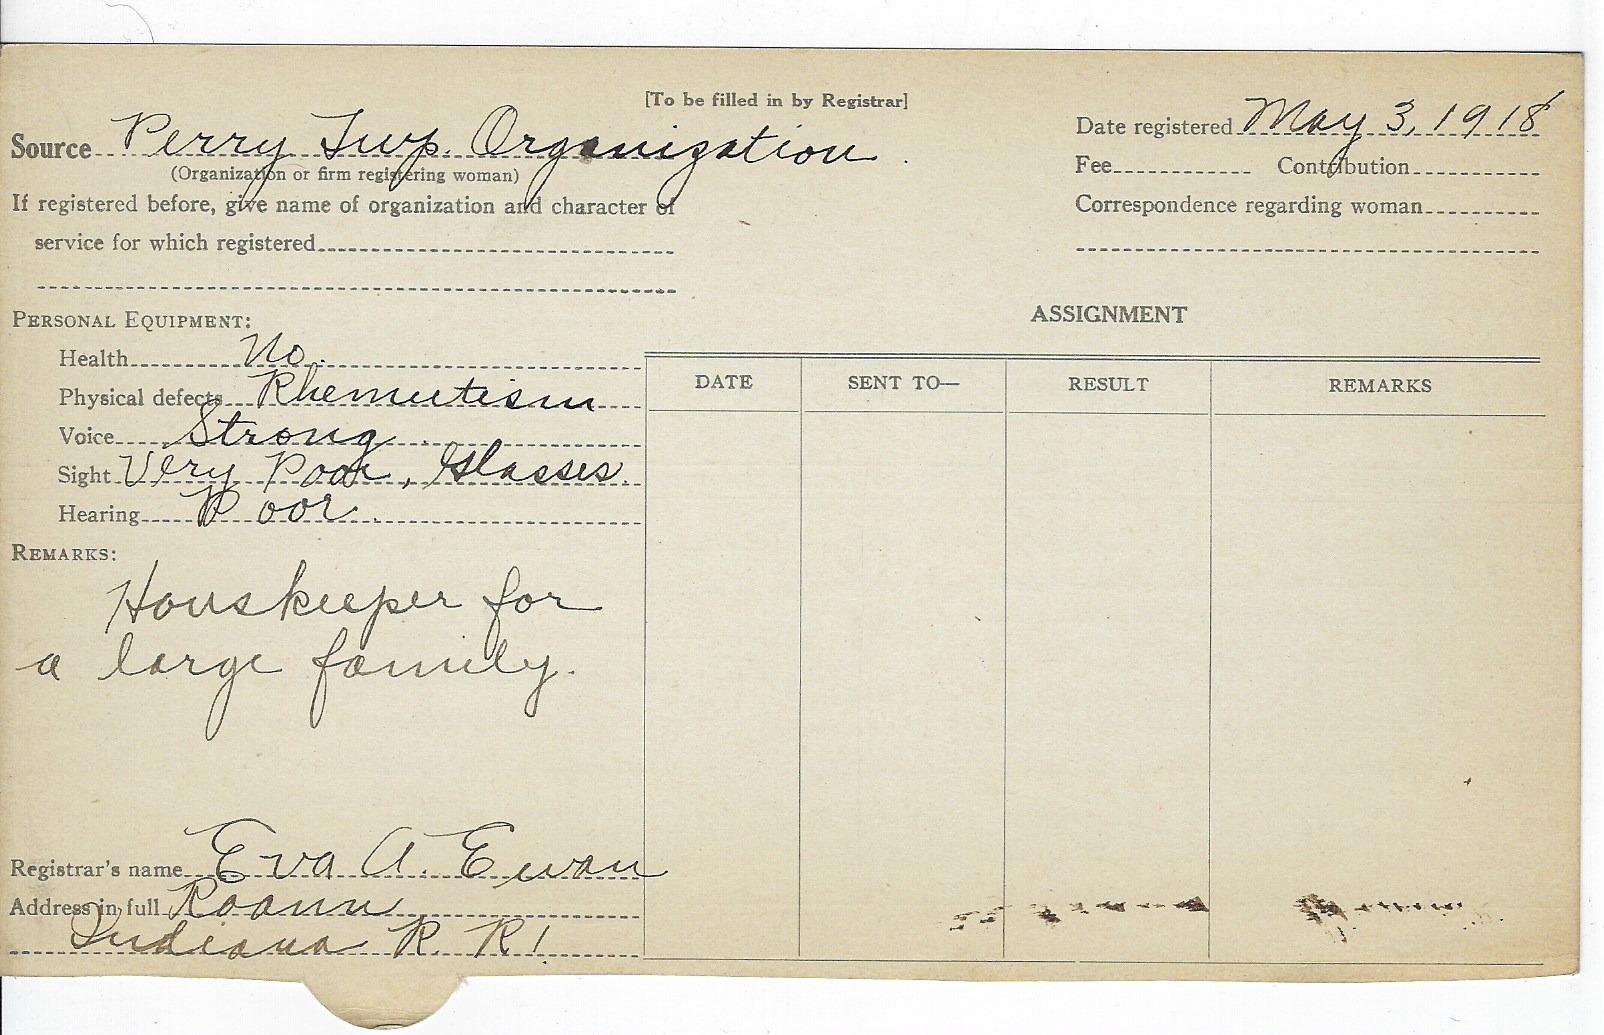 [To be filled in by Registrar]
Source Perry Twp. Organization.
(Organization or firm registering woman)
If registered before, give name of organization and character of
service for which registered
Date registered May 3, 1918
Fee Contribution
Correspondence regarding woman
PERSONAL EQUIPMENT:
Health No.
Physical defects Rhemutism
Voice Strong.
Sight Very Poor, Glasses.
Hearing Poor.
REMARKS:
Houskeeper for
a large family.
Registrar's name Eva A. Ewan
Address in full Roann
Indiana R. R 1
ASSIGNMENT
DATE SENT TO— RESULT REMARKS